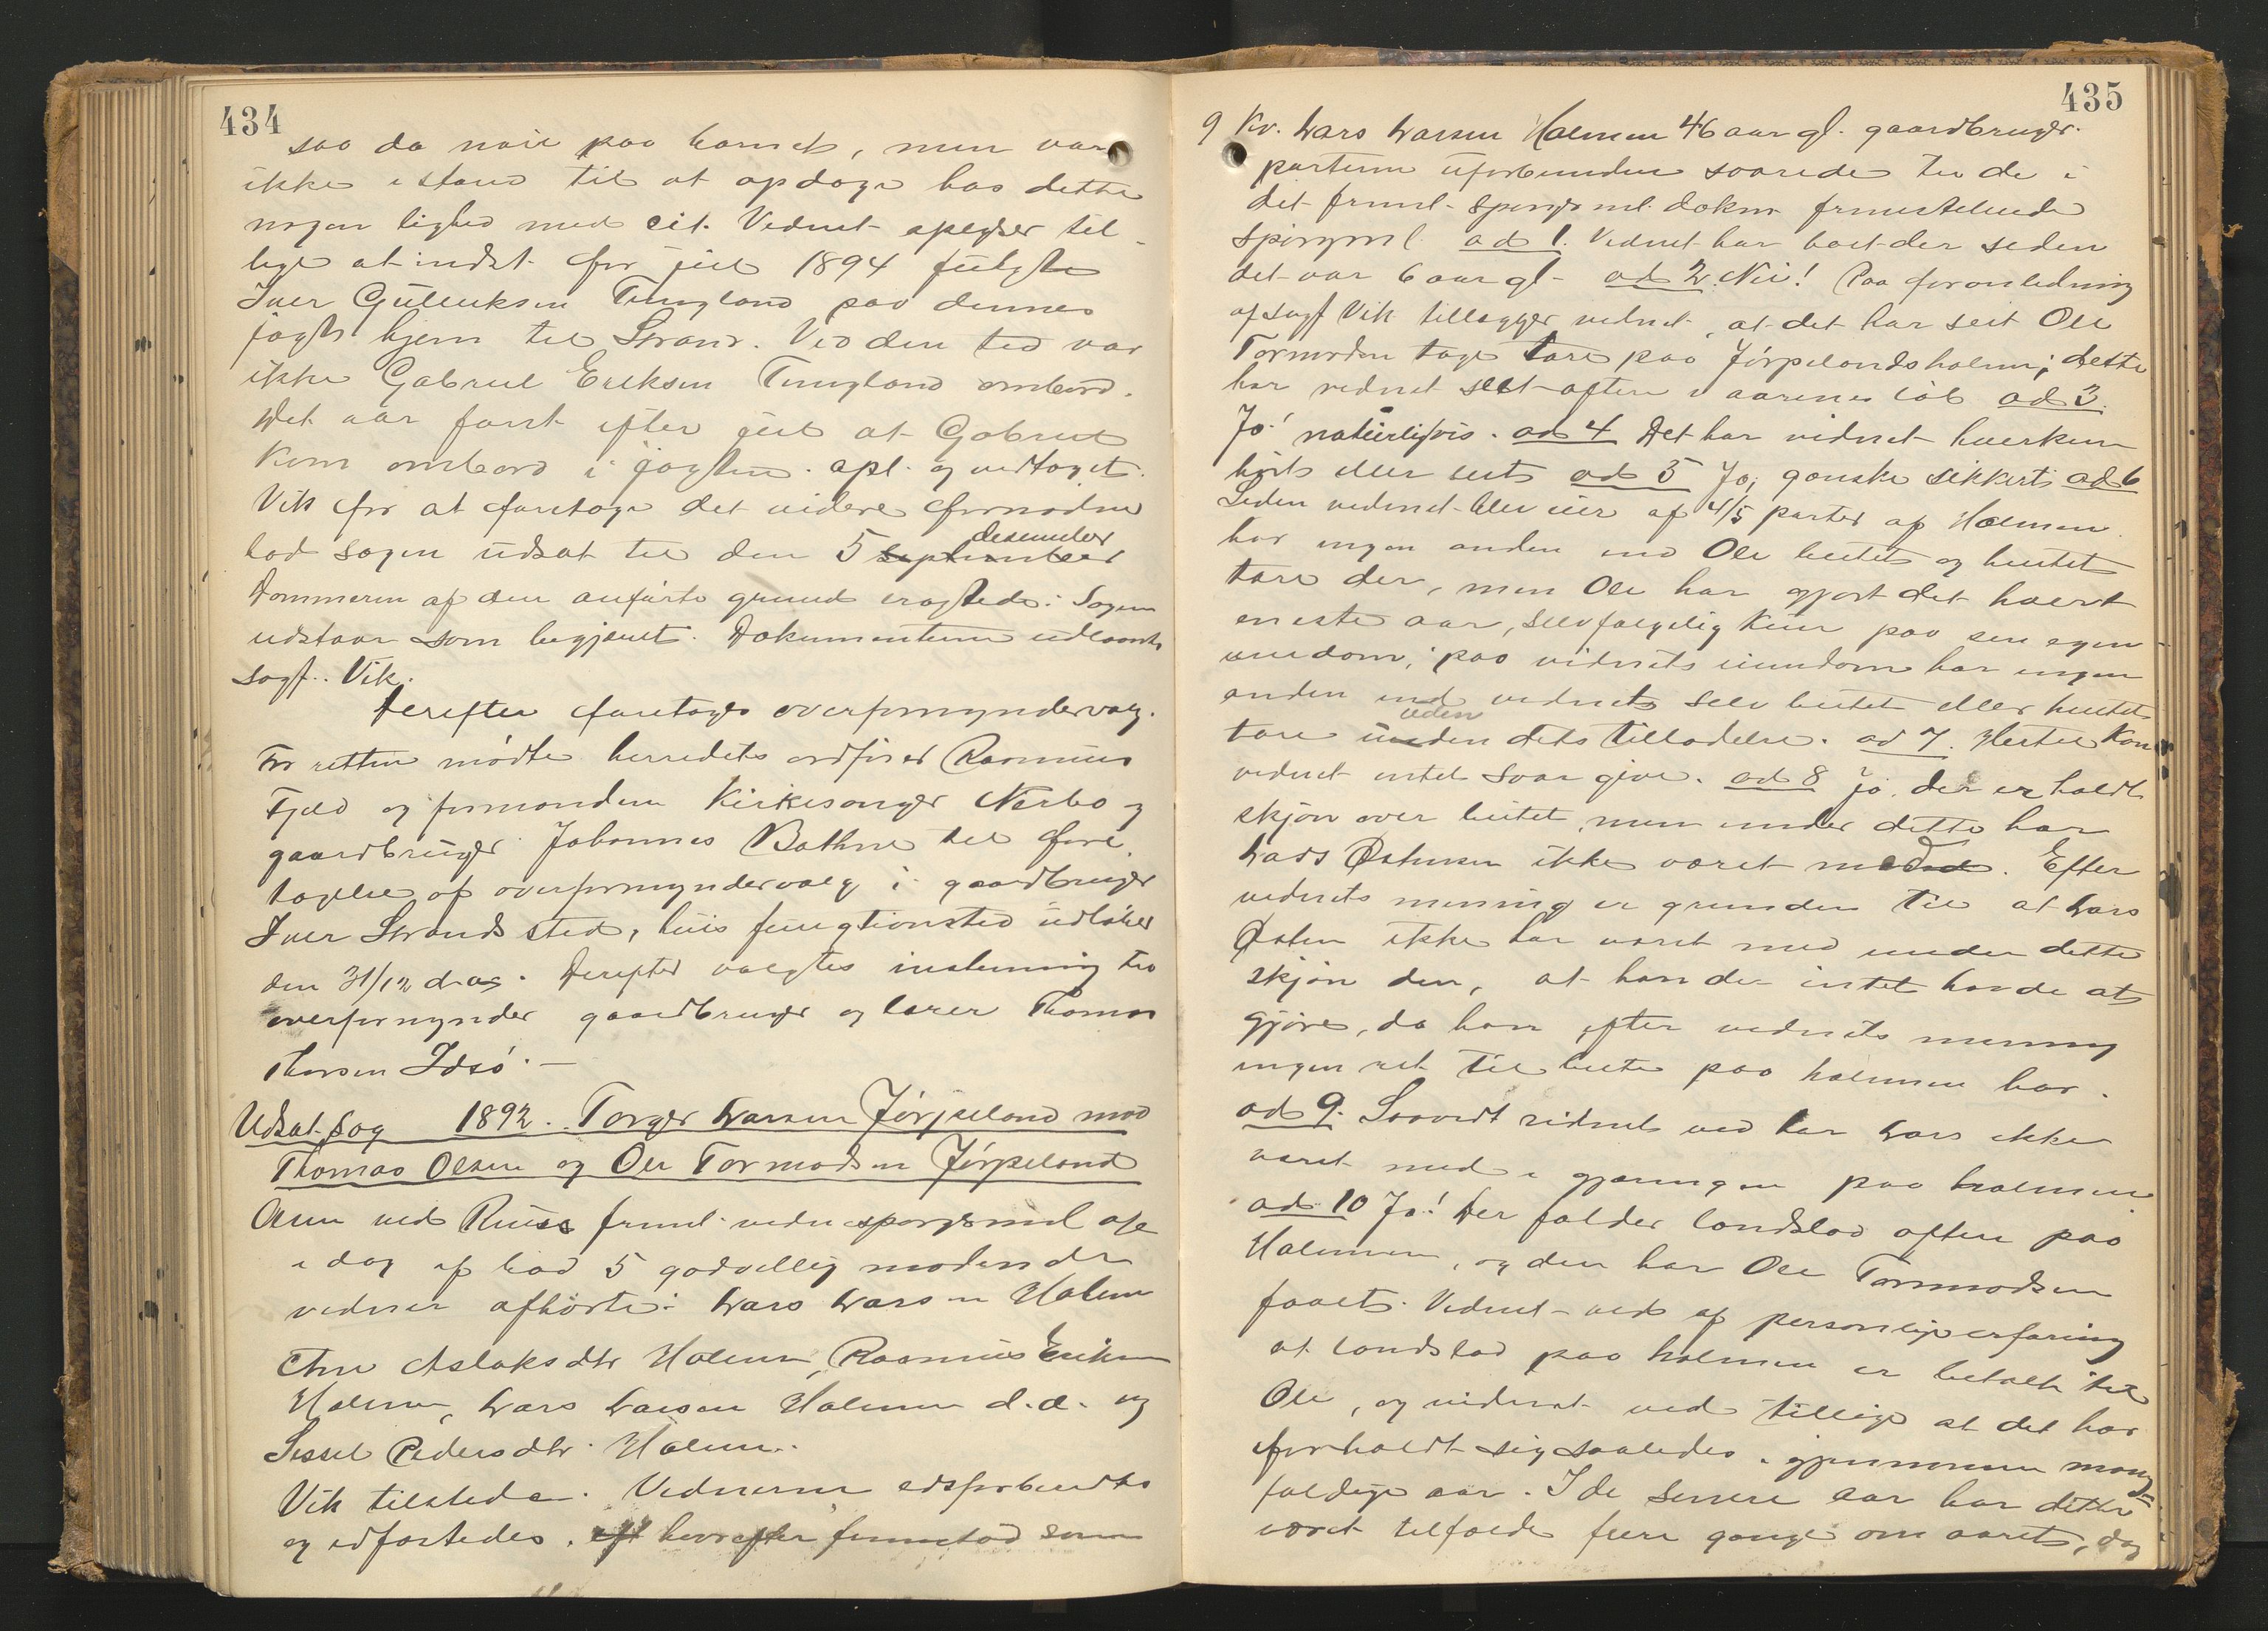 434
saa da nøie paa barnet, men var
ikke istand til at opdage hos dette
nogen lighed med cit. Vednet oplyser til-
lige at indst. før jul 1894 fulgte
Iver Gulleiksen Tungland paa dennes
jagt hjem til Strand. Ved den tid var
ikke Gabriel Eriksen Tungland ombord.
Det var først efter jul at Gabriel
kom ombord i jagten. Opl. og vedtaget.
Vik for at foretage det videre fornødne
bad sagen udsat til den 5 september desember
Dommeren af den anførte grund eragtede: Sagen
udstaar som begjæret. Dokumenterne udlaantes
sagf. Vik.
Derefter foretoges overformyndervalg.
For retten mødte herredets ordfører Rasmus
Fjeld og formanden Kirkesanger Nerbø og
gaardbruger Johannes Bathne til fore-
tagelse af overformyndervalg i gaardbruger
Iver Strands sted, hvis fungtionstid udløber
den 31/12 d.a. Derefter valgtes instemmig til
overformynder gaardbruger og lærer Thomas
Thorsen Idsø. —
Udsat Sag 1892. Torger Larsen Jørpeland mod
Thomas Olsen og Ole Tormodsen Jørpeland
Aam ved Riise freml. vidnespørgsmaal afs
i dag af bad 5 godvillig mødende
vidner afhørte: Lars Larsen Holmen
Ane Aslaksdtr Holmen, Rasmus Eriksen
Holmen, Lars Larsen Holmen d.æ. og
Sissel Pedersdtr. Holmen.
Vik tilstede. Vednerne edsforbundtes
og edfæstedes, eft hvorefter fremstod som
435
9 Kv. Lars Larsen Holmen 46 aar gl. gaardbruger.
parterne uforbunden svarede til de i
det freml. spørgsml. dokm. fremstillede
spørgsml. ad 1. Vednet har boet der siden
det var 6 aar gl. ad 2. Nei! Paa foranledning
af sagf Vik tillægger vednet, at det har seet Ole
Tormodsen tage tare paa Jørpelandsholmen; dette
har vednet seet oftere i aarenes løb ad 3.
Jo! naturligvis. ad 4 Det har vidnet hverken
hørt eller seet ad 5 Jo, ganske sikkert ad 6
Siden vednet blev eier af 4/5 parter af Holmen
har ingen anden end Ole beitet og hentet
tare der, men Ole har gjort det hvert
eneste aar, selvfølgelig kun paa sin egen
eiendom; paa vidnets eiendom har ingen
anden end vednet selv beitet eller hentet
tare uden uden dets tilladelse. ad 7. Hertil kan
vednet intet svar give. ad 8 Jo, der er holdt
skjøn over beitet, men under dette har
Lars Østensen ikke været med. Efter
vednets mening er grunden til at Lars
Østen ikke har været med under dette
skjøn den, at han der intet havde at
gjøre, da han efter vednets mening
ingen ret til beite paa holmen har.
ad 9. Saavidt vidnet ved har Lars ikke
været med i gjæringen paa holmen
ad 10 Jo! Der falder landslod oftere paa
Holmen, og den har Ole Tormodsen
faaet. Vednet ved af personlige erfaring
at landslod paa holmen er betalt til
Ole, og vidnet ved tillige at det har
forholdt sig saaledes igjennem mang-
foldige aar. I de senere aar har dette
været tilfælde flere gange om aaret, dog